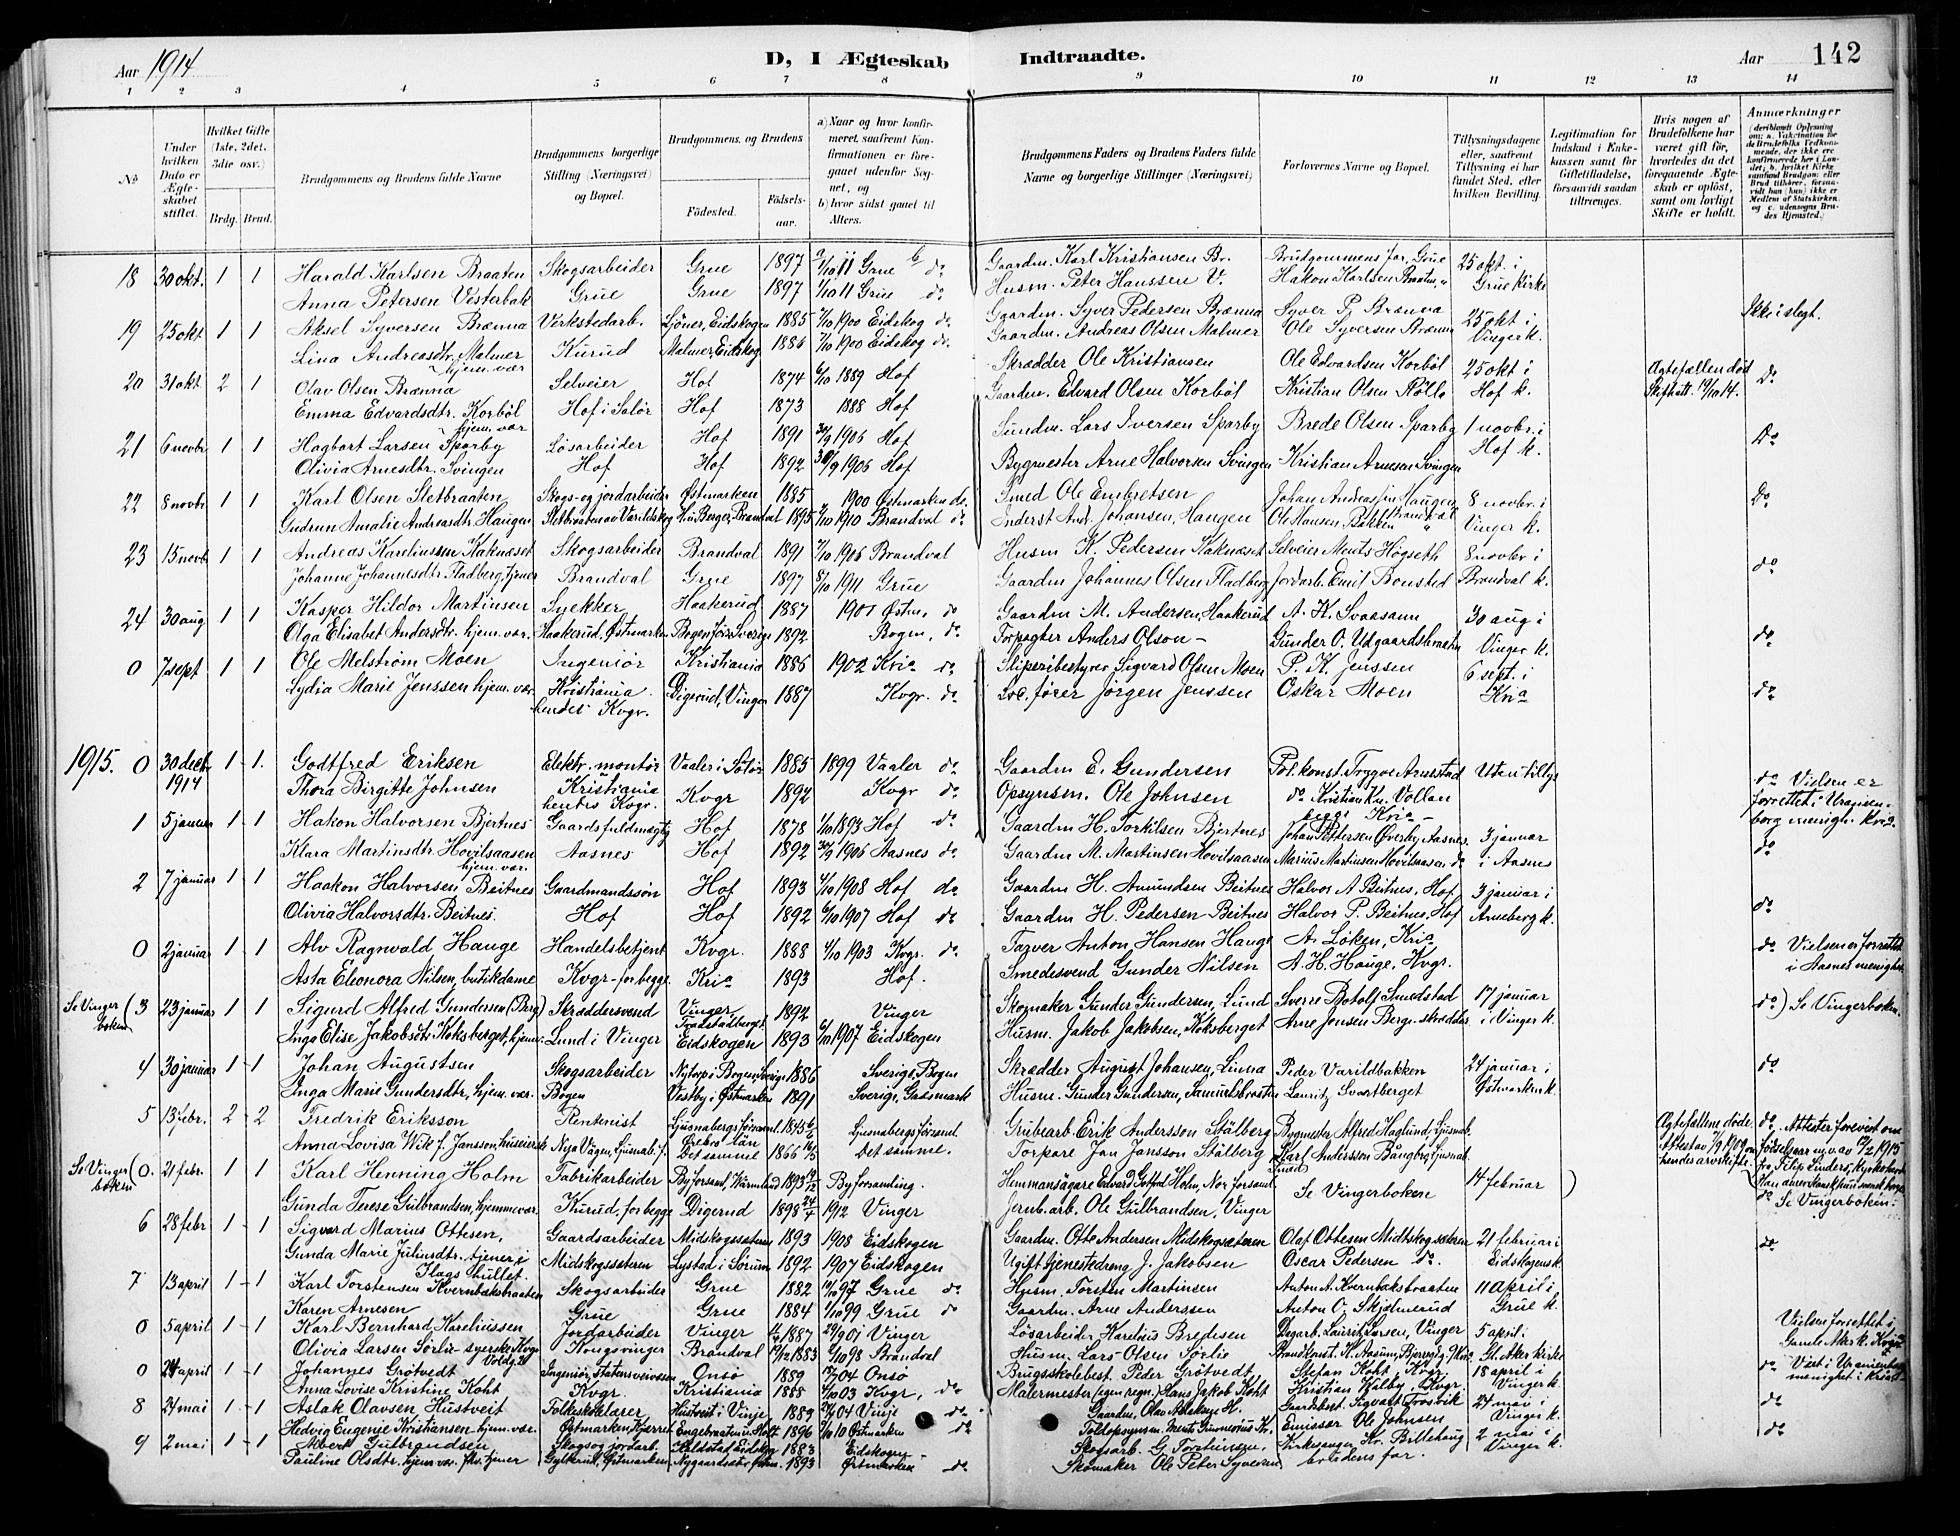 Aar 1914
D, I Ægteskab Indtraadte.
Aar
142
1 2 3 4 5 6 7 8 9 10 11 12 13 14
No
Under hvilken Dato er Ægteskabet stiftet.
Hvilket Gifte (1ste, 2det, 3die osv.)
Brdg. Brud.
Brudgommens og Brudens fulde Navne
Brudgommens borgerlige Stilling (Næringsvei) og Bopæl.
Brudgommens og Brudens
Fødested. Fødselsaar.
a) Naar og hvor konfirmeret, saafremt Konfirmationen er foregaaet udenfor Sognet, og b) hvor sidst gaaet til Alters.
Brudgommens Faders og Brudens Faders fulde Navne og borgerlige Stillinger (Næringsvei)
Forlovernes Navne og Bopæl.
Tillysningsdagene eller, saafremt Tillysning ei har fundet Sted, efter hvilken Bevilling.
Legitimation for Indskud i Enkekassen samt for Giftetilladelse, forsaavidt saadan tiltrænges.
Hvis nogen af Brudefolkene har været gift før, hvorledes da det foregaaende Ægteskab er opløst, samt om lovligt Skifte er holdt.
Anmærkninger
18 30 okt. 1 1 Harald Karlsen Braaten Skogsarbeider Grue 1897 Grue do Gaardm. Karl Kristiansen B. Brudgommens far, Grue 25 okt. i
Anna Petersen Vesterbak Grue Grue 1897 1/10 11 Grue do Husm. Peter Hanssen V. Hakon Karlsen Braaten Grue kirke
19 25 okt 1 1 Aksel Syversen Brænna Verkstedarb. Sjöner, Eidskogen 1885 1/10 1900 Eidskog do Gaardm. Syver Pedersen Brænna Syver P. Brænna 25 okt i Ikke i slegt.
Lina Andreasdtr. Malmer hjem. vær Kurud Malmer, Eidskog 1886 1900 Eidskog do Gaardm. Andreas Olsen Malmer Ole Syversen Brænna Vinger k.
20 31 okt 2 1 Olav Olsen Brænna Selveier Hof 1874 6/10 1889 Hof Skrædder Ole Kristiansen Ole Edvardsen Korböl 25 okt i Ægtefællen död Do
Emma Edvardsdtr. Korböl hjem. vær Hof i Solör Hof 1873 1888 Hof Gaardm. Edvard Olsen Korböl Kristian Olsen Rölla Hof k.
21 6 novbr 1 1 Hagbart Larsen Sparby Lösarbeider Hof 1891 1906 Hof Sundm. Lars Iversen Sparby Brede Olsen Sparby 1 novbr. i Do
Olivia Arnesdtr. Svingen Hof Hof 1892 1906 Hof Bygmester Arne Halvorsen Svingen Kristian Arnesen Svingen Hof k.
22 8 novbr 1 1 Karl Olsen Sletbraaten Skogs- og jordarbeider Östmarken 1885 1900 Östmarken do. Smed Ole Embretsen Johan Andreassen Haugen 8 novbr. i Do
Gudrun Amalie Andreasdtr. Haugen Berger, Brandval 1895 1910 Brandval do Inderst And. Johansen, Haugen Ole Hansen, Bakken Vinger k.
23 15 novb. 1 1 Andreas Kareliussen Kaknæset Skogsarbeider Brandval 1891 7/10 1906 Brandval Husm K. Pedersen Kaknæset Selveier Ments Högseth 8 novbr i do
Johanne Johannesdtr. Fladberg, tjener Brandval Grue 1897 8/10 1911 Grue Gaardm Johannes Olsen Fladberg Jordarb. Emil Bonsted Brandval k.
24 30 aug 1 1 Kasper Hildor Martinsen Snekker Haakerud 1887 1901 Östm. do Gaardm M. Andersen, Haakerud A. K. Svaasann 30 aug i do
Olga Elisabet Andersdtr. hjem. vær. Haakerud, Östmarken Bogen, Sverige 1892 Bogen, do Forpagter Anders Olson Gunder O. Udgaardsbraaten Vinger k.
0 7 sept 1 1 Ole Melström Moen Ingeniör Kristiania 1886 1902 Kria do Sliperibestyrer Sigvard Olsen Moen P. K. Jenssen 6 sept. i do
Lydia Marie Jenssen hjem. vær. Kristiania hendes Kvgr. Digerud, Vinger 1887 Kvgr. do Jörgen Jenssen Oskar Moen Kria
1915. 0 30 decbr 1914 1 1 Godtfred Eriksen Elektr. montör Vaaler i Solör 1885 1899 Vaaler do Gaardm E. Gundersen Pol. konst. Trygve Arnestad Uten tillys do Vielsen er
Thora Birgitte Johnsen Kristiania hendes Kvgr. Kvgr 1892 Kvgr do Opsynsm. Ole Johnsen do Kristian Kn. Vollan Kria forrettet i Uranienborg menigh. Kria.
1 5 januar 1 1 Hakon Halvorsen Bjertnes Gaardsfuldmægtig Hof 1878 1/10 1893 Hof do Gaardm H. Torkilsen Bjertnes Johan Petersen Överby Aasnes 3 januar do
Klara Martinsdtr. Hovilsaasen hjem. vær. Aasnes Hof 1892 1906 Aasnes do Gaardm M. Martinsen Hovilsaasen Marius Martinsen Hovilsaasen do i Aasnes
2 7 januar 1 1 Haakon Halvorsen Beitnes Gaardmandssön Hof 1893 4/10 1908 Hof do Gaardm H. Amundsen Beitnes Halvor A Beitnes, Hof 3 januar i do
Olivia Halvorsdtr. Beitnes Hof Hof 1892 6/10 1907 Hof do Gaardm H. Pedersen Beitnes Halvor P. Beitnes, Hof Arneberg k.
0 2 januar 1 1 Alv Ragnvald Hauge Handelsbetjent Kvgr. 1888 4/10 1903 Kvgr. do Farver Anton Hansen Hauge A. Löken, Kria do Vielsen er forrettet
Asta Eleonora Nilsen, butikdame Kvgr - for begge Kria 1893 Hof. Smedesvend Gunder Nilsen A. H. Hauge, Kvgr. i Aasnes menighet
Se Vingerboken (3 23 januar 1 1 Sigurd Alfred Gundersen (Berg) Skræddersvend Vinger, 1892 Vinger Skomaker Gunder Gundersen, Lund Sverre Botolf Smedstad 17 januar do) Se Vingerboken.
Inga Elise Jakobsdtr Koksberget, hjemv. Lund i Vinger Eidskogen 1893 6/10 1907 Eidskogen Husm. Jakob Jakobsen, Koksberget Arne Jensen Berg - skrædder i Vinger k.
4 30 januar 1 1 Johan Augustsen Skogsarbeider Nytorp i Bogen, Sverige 1886 Sverige, Bogen Skrædder August Johansen, Linna Peder Varildbakken 24 januar i do
Inga Marie Gundersdtr. hjem. vær. Bogen Vestby i Östmarken 1891 Sverige, Gräsmark Husm. Gunder Gundersen, Samuelsbraaten Lauritz Svartberget Östmarken k
5 13 febr. 2 2 Fredrik Eriksson Rentenist Ljusnabergs församl. 1845 Ljusnabergs församl. Grubearb. Erik Andersson Stålberg Bygmester Alfred Haglund, Ljusnab. Ægtefællene döde do. Attester forevist om
Anna Lovisa Wik f. Jansson, huseierske Nya Vägen, Ljusnab. f. Örebro län Det samme 1866 Det samme. Torpare Jan Jansson Stålberg Karl Andersson Bångbro, Ljusnab.
Se Vingerboken (0. 21 febr. 1 1 Karl Henning Holm Fabrikarbeider By forsaml. Wärmland 1893 By forsamling. Hemmansägare Edvard Gottfrid Holm, Nor forsaml. Se Vingerboken 14 februar )
Gunda Terese Gulbrandsen, hjemmevær. Kurud, for begge Digerud 1895 1912 Vinger Jernb. arb. Ole Gulbrandsen, Vinger do Se Vingerboken.
6 28 febr 1 1 Sigvard Marius Ottesen, Gaardsarbeider Midskogsæteren 1893 1908 Eidskogen Gaardm. Otto Andersen Midskogsæteren Olaf Ottesen Midtskogsæteren 21 februar i do
Gunda Marie Juliusdtr. tjener i Flags hullet Midskogssæteren Lystad i Sörum 1892 1907 Eidskogen Ugift tjenestedreng J. Jakobsen Oscar Pedersen do. Eidskogens k.
7 13 april 1 1 Karl Torstensen Kvernbaksbraaten Skogsarbeider Grue 1882 97 Grue do Husm. Torsten Martinsen Anton A. Kvernbaksbraaten 11 april i
Karen Arnesen Grue Grue 1884 1/10 99 Grue do Gaardm. Arne Anderssen Anton O. Skjölnerud Grue k.
0 5 april 1 1 Karl Bernhard Kareliussen Jordarbeider Vinger 1887 Vinger Lösarbeider Karelius Bredesen Dagarb. Laurits Larsen, Vinger 5 april i Vielsen forrettet i
Olivia Larsen Sörlie - syerske Kongsvinger Brandval 1883 98 Brandval Husm. Lars Olsen Sörlie Gl. Aker kirke Gamle Aker k.
0 24 april 1 1 Johannes Grötvedt Ingeniör, Statensveivæsen Onsö 1889 04 Onsö Brugsskolebest. Peder Grötvedt Stefan Koht, Kvgr. 18 april i do Viet i Uranienborg
Anna Lovise Kristine Koht Kvgr. Kristiania 1888 03 Kvgr, do Malermester (egen regn.) Hans Jakob Koht Kristian Kalby, Kvgr Vinger k. menighet i Krist.
8 24 mai 1 1 Aslak Olavsen Hustveit Folkeskolelærer Hustveit i Vinje 1889 04 Vinje do Gaardm. Olav Aslaksen H. Gaardbest. Sigvart Trosvik 24 mai i do
Hedvig Eugenie Kristiansen hjem. vær. Östmarken, Kjerret 1896 10 Östmarken do Toldopsynsm. Emissær Ole Johnsen Vinger k.
9 2 mai 1 1 Albert Gulbrandsen Skogs og jordarb. 1883 Eidskogen Skogsarb. G. Torstensen, Kirkesanger Kr. Billehaug 2 mai i do
Pauline Olsdtr. hjem. vær. tjener Gylterud, Östmarken Nygaardsæter Östm. 1893 Östmarken do Skomaker Ole Peter Syversen Vinger k.